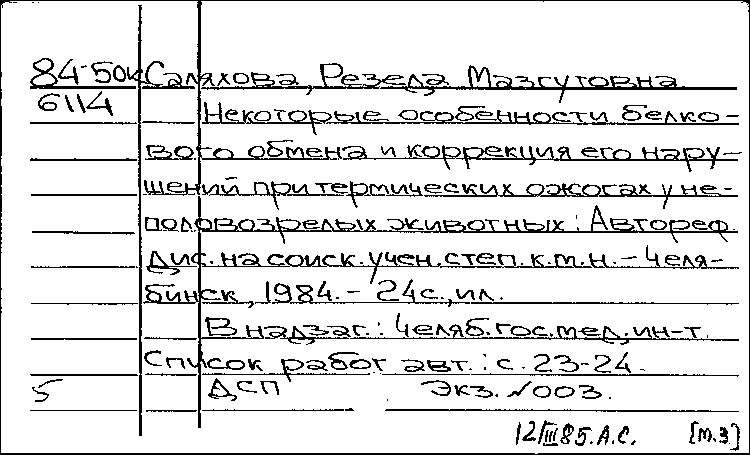 84-50к Саляхова, Резеда Мазгутовна.
6114 Некоторые особенности белко-
вого обмена и коррекция его нару-
шений при термических ожогах у не-
половозрелых животных: Автореф.
дис. на соиск. учен. степ. к.м.н. - Челя-
бинск, 1984. - 24с., ил.
В надзаг.: Челяб. гос. мед. ин-т.
Список работ авт.: с. 23-24.
5 ДСП Экз. №003.
12/III 85. А.С. [м.з]